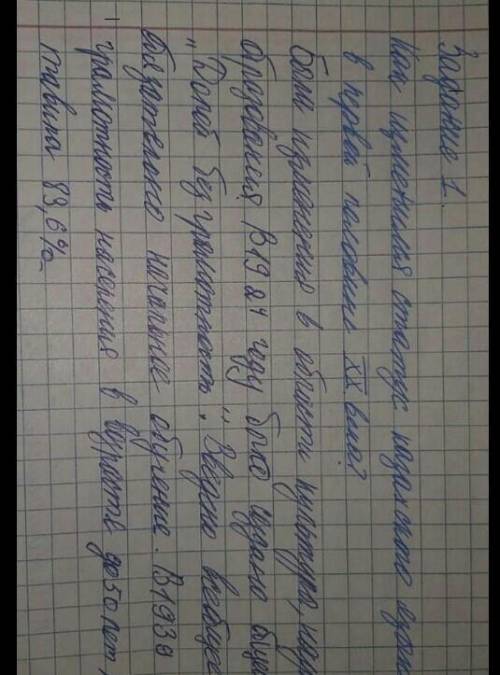 Задание 1.
Как изменился статус казахского язык
в первой половине XX века?
Были изменения в области культура, нау
образования. В 1924 году было создано обще
"Долой безграмотность". Введено всеобуе
обязательно начальное обучение. В 1939
грамотность населения в возрасте до 50 лет,
тавила 83,6%